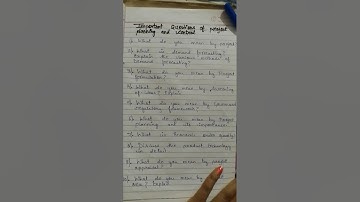 Important Questions of project
planning and control
1) What do you mean by project
2) What is demand forecasting?
Explain the various methods of
demand forecasting?
3) What do you mean by Project
formulation?
4) What do you mean by
of ideas? Explain
5) What do you mean by Government
regulatory framework?
6) What do you mean by Project
planning and its importance?
7) What is Economic order quantity
8) Discuss the product technology
in detail
9) What do you mean by
appraisal?
10) What do you mean by
Explain?